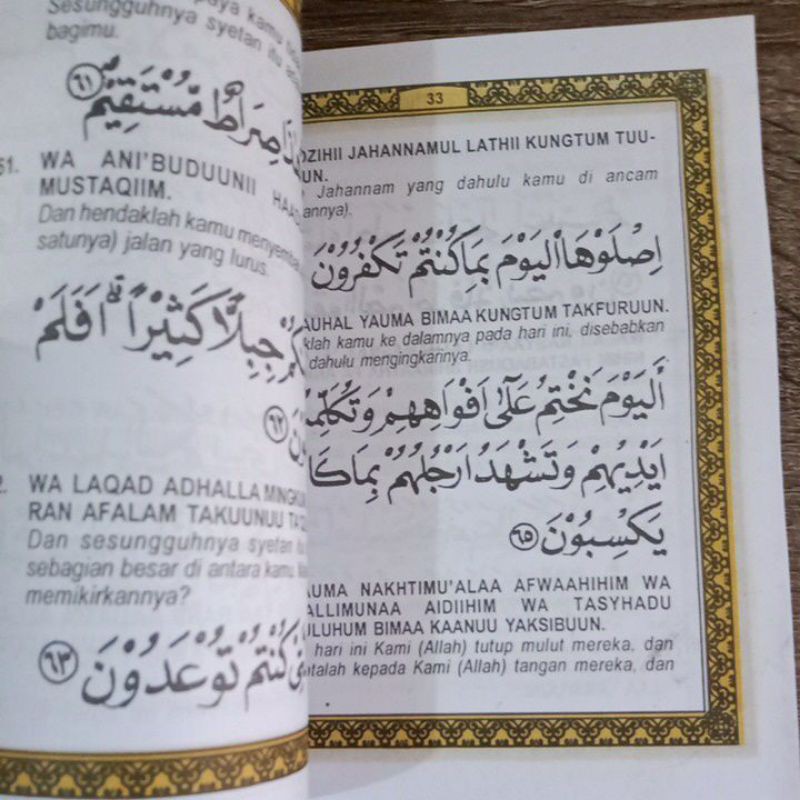 Sesungguhnya syetan itu
bagimu.
صِرَاطٌ مُّسْتَقِيْمٌ ٦١
WA ANI'BUDUUNII
MUSTAQIIM.
Dan hendaklah kamu
satunya) jalan yang lurus.
جِبِلًّا كَثِيْرًا ۗ اَفَلَمْ
٦٢
WA LAQAD ADHALLA MINGKU
RAN AFALAM TAKUUNUU
Dan sesungguhnya syetan
sebagian besar di antara kamu.
memikirkannya?
كُنْتُمْ تُوْعَدُوْنَ ٦٣
33
DZIHII JAHANNAMUL LATHII KUNGTUM TUU-
UN.
Jahannam yang dahulu kamu di ancam
annya).
اِصْلَوْهَا الْيَوْمَ بِمَا كُنْتُمْ تَكْفُرُوْنَ
AUHAL YAUMA BIMAA KUNGTUM TAKFURUUN.
klah kamu ke dalamnya pada hari ini, disebabkan
dahulu mengingkarinya.
اَلْيَوْمَ نَخْتِمُ عَلٰٓى اَفْوَاهِهِمْ وَتُكَلِّمُ
اَيْدِيْهِمْ وَتَشْهَدُ اَرْجُلُهُمْ بِمَا كَا
يَكْسِبُوْنَ ٦٥
AUMA NAKHTIMU'ALAA AFWAAHIHIM WA
ALLIMUNAA AIDIIHIM WA TASYHADU
ULUHUM BIMAA KAANUU YAKSIBUUN.
hari ini Kami (Allah) tutup mulut mereka, dan
atalah kepada Kami (Allah) tangan mereka, dan